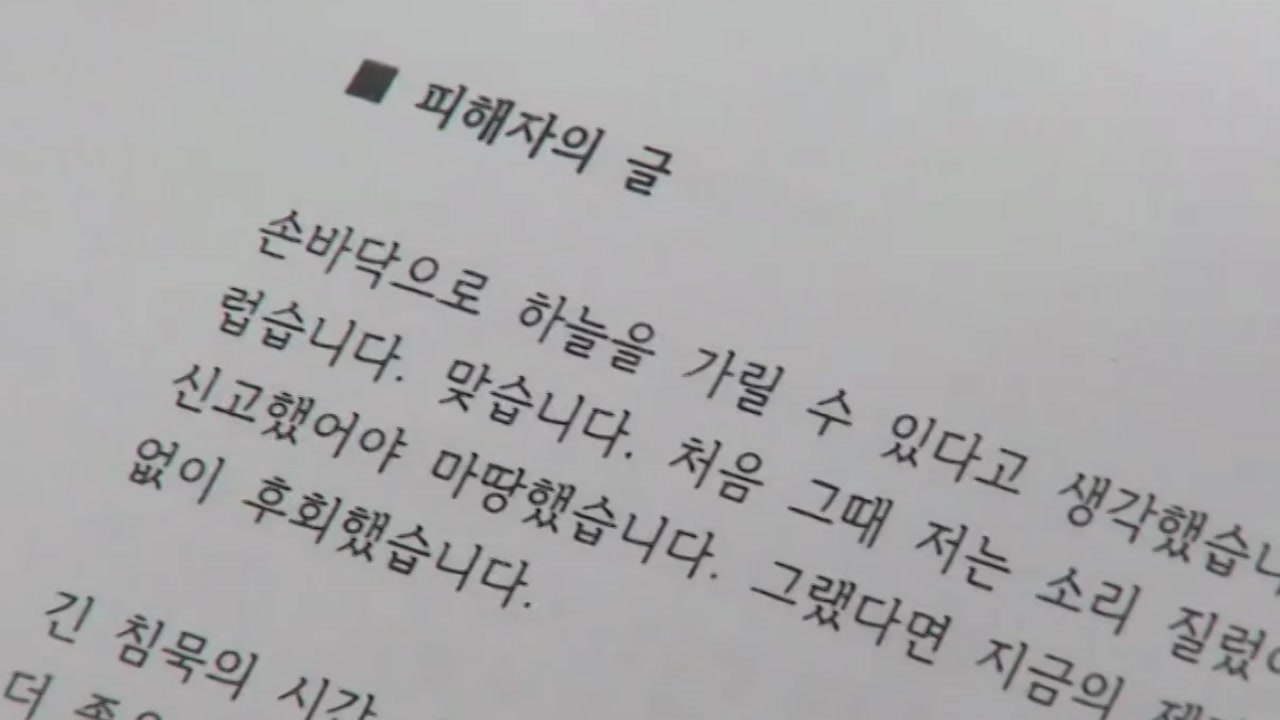 ■ 피해자의 글
손바닥으로 하늘을 가릴 수 있다고 생각했습니
럽습니다. 맞습니다. 처음 그때 저는 소리 질렀
신고했어야 마땅했습니다. 그랬다면 지금의
없이 후회했습니다.
긴 침묵의 시간
더